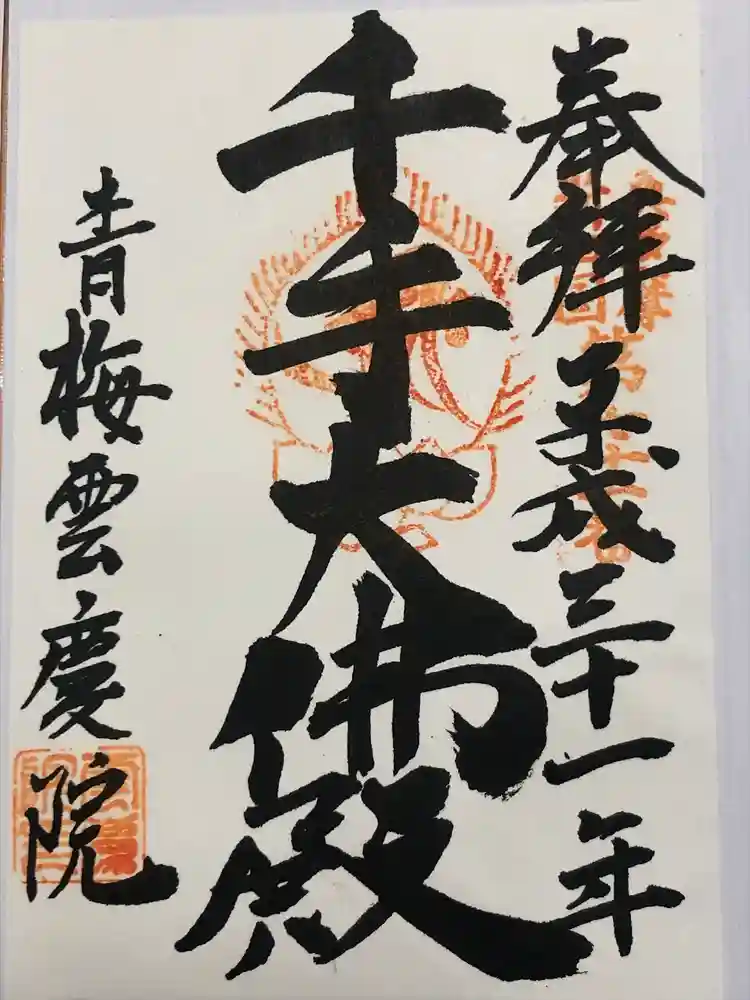 奉拝
平成三十一年
千手大佛殿
青梅雲慶院